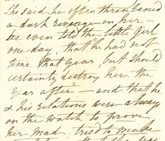 She said he often threatened
a dark revenge on her —
he even told the little girl
one day, that he had not
time that year but should
certainly destroy her the
year after — and that he
& his relations were always
on the watch to prove
her mad. tried to make